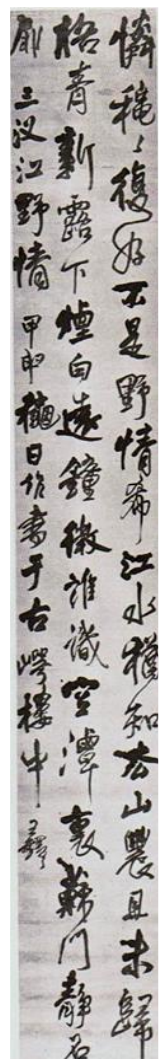 憐穐〻復好不是野情希江水猶知去山農且未歸
梧青新露下煙白遠鐘微誰識空潭裏蘇門靜
三汊江野情 甲申穐日作書于古樓中 王鐸